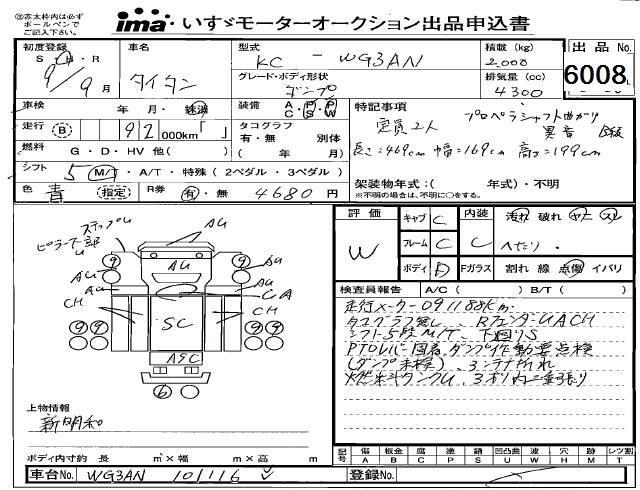 ㊟赤太枠内は必ず
ボールペンで
ご記入下さい。
ima いすゞモーターオークション出品申込書
初度登録 車名 型式 積載(kg) 出品No.
S・H・R 9/9月 タイタン KC - WG3AN 2,000 6008
グレード・ボディ形状 排気量(cc)
ダンプ 4300
車検 年 月・抹消 装備 A・P・P C・S・W 特記事項
走行 B 92 000km「 」 タコグラフ 有・無 別体 定員2人 プロペラシャフト曲がり 異音
燃料 G・D・HV 他( ) ( 年 月) 長さ=469cm 幅=169cm 高さ=199cm
シフト 5 M/T・A/T・特殊(2ペダル・3ペダル)
色 青 (指定) R券 有・無 4680円 架装物年式:( 年式)・不明
※不明の場合は、不明に○をする。
ステップU
ピラー下部
AU
9 9
AU AU AU
AU
CH CH
SC
9 9 9 9
ASC
6
評価 W キャブ C 内装 C 汚れ 破れ ヤニ スレ
フレーム C へたり・
ボディ D Fガラス 割れ 線 点傷 イバリ
検査員報告 A/C( ) B/T( )
走行メーター091188km
タコグラフ無し、RフェンダーUACH
シフト5段M/T、下廻りS
PTOレバー固着、ダンプ作動要点検
(ダンプ未検)
上物情報
新明和
ボディ内寸約 長 m×幅 m×高 m
記号 傷 A 板金 B 腐 C 塗 P 錆 S 凹凸曲 U 波 W 穴 H 跡 M レツ割 T
車台No. WG3AN 101116 登録No.